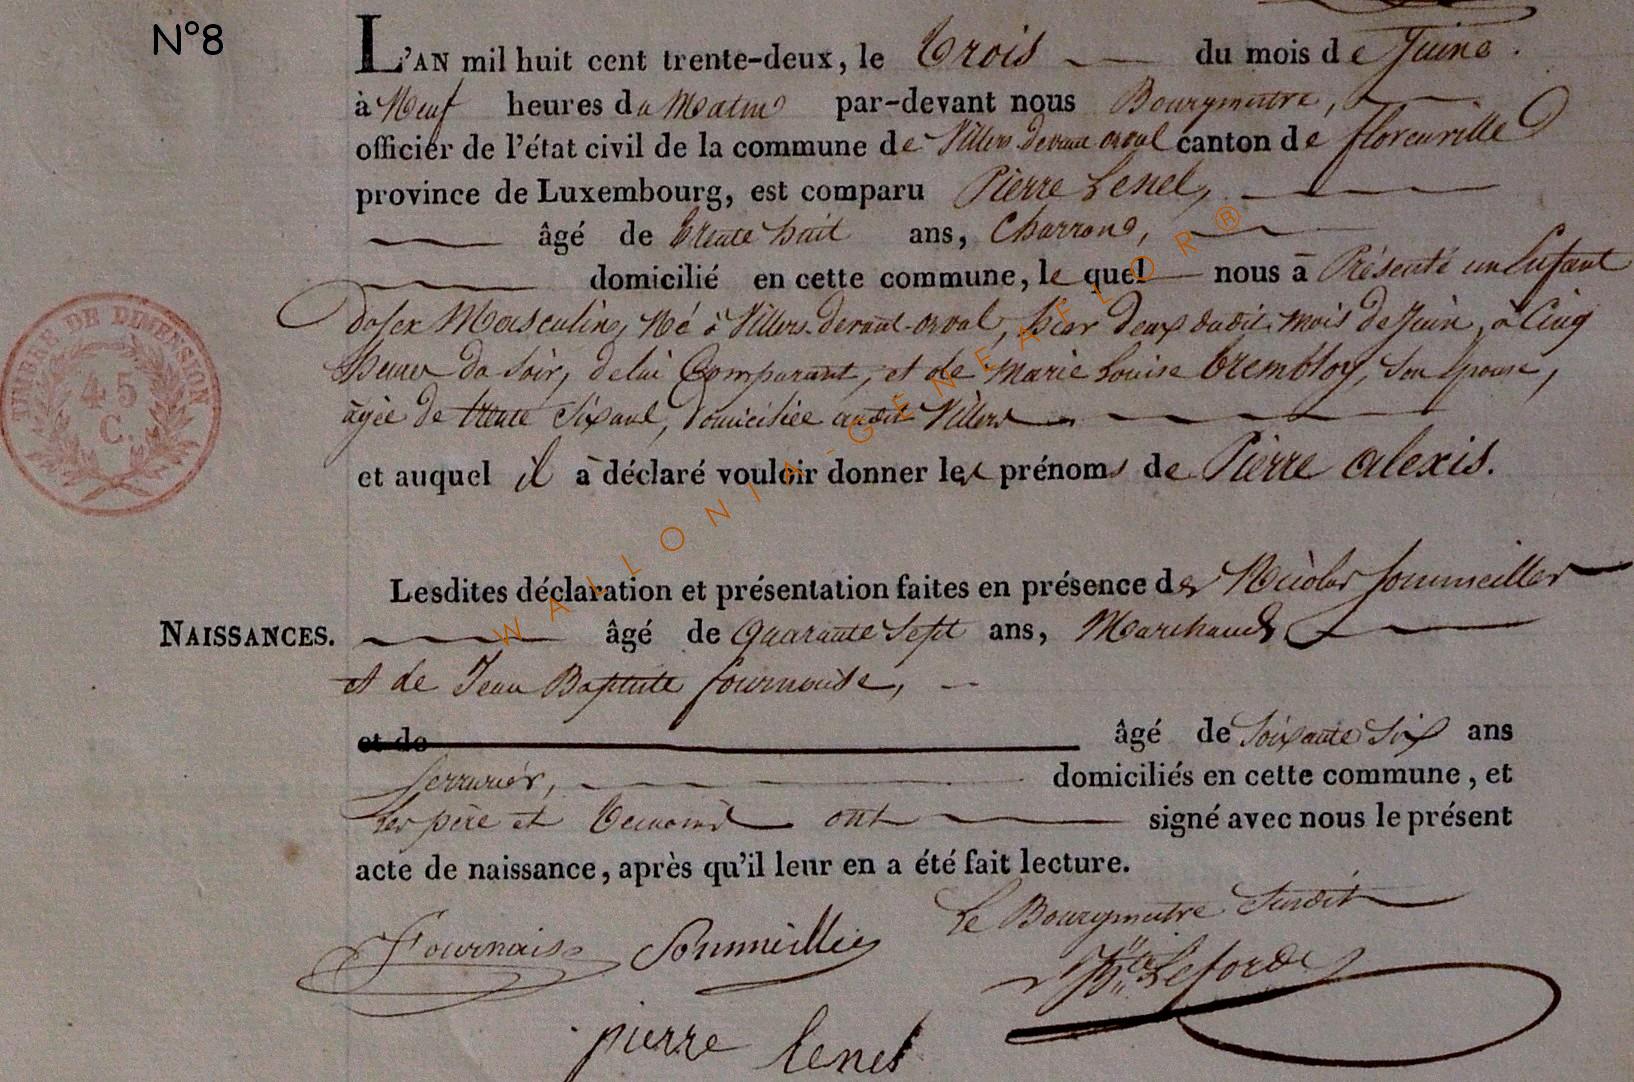 N°8
L'AN mil huit cent trente-deux, le Trois du mois de Juin
à Neuf heures du Matin par-devant nous Bourgmestre,
officier de l'état civil de la commune de Villers devant orval canton de florenville
province de Luxembourg, est comparu Pierre Lenel,
âgé de trente huit ans, Charron,
domicilié en cette commune, le quel nous à Présenté un Enfant
du sex Masculin, Né à Villers-devant-orval, hier deux dudit mois de Juin, à Cinq
heures du Soir, de lui Comparant, et de Marie Louise trembloy, Son Epouse,
âgée de trente Six ans, Domiciliée audit Villers
et auquel il à déclaré vouloir donner les prénoms de Pierre alexis.
Lesdites déclaration et présentation faites en présence de Nicolas Sommeiller
NAISSANCES.
âgé de Quarante Sept ans, Marchand,
et de Jean Baptiste fournaise,
et de
âgé de Soixante Six ans
Serrurier, domiciliés en cette commune, et
Les père et Temoins ont signé avec nous le présent
acte de naissance, après qu'il leur en a été fait lecture.
Le Bourgmestre Susdit
Fournaise Sommeillier
pierre lenel
TIMBRE DE DIMENSION
45
C.
WALLONIA-GENEAFLOR®